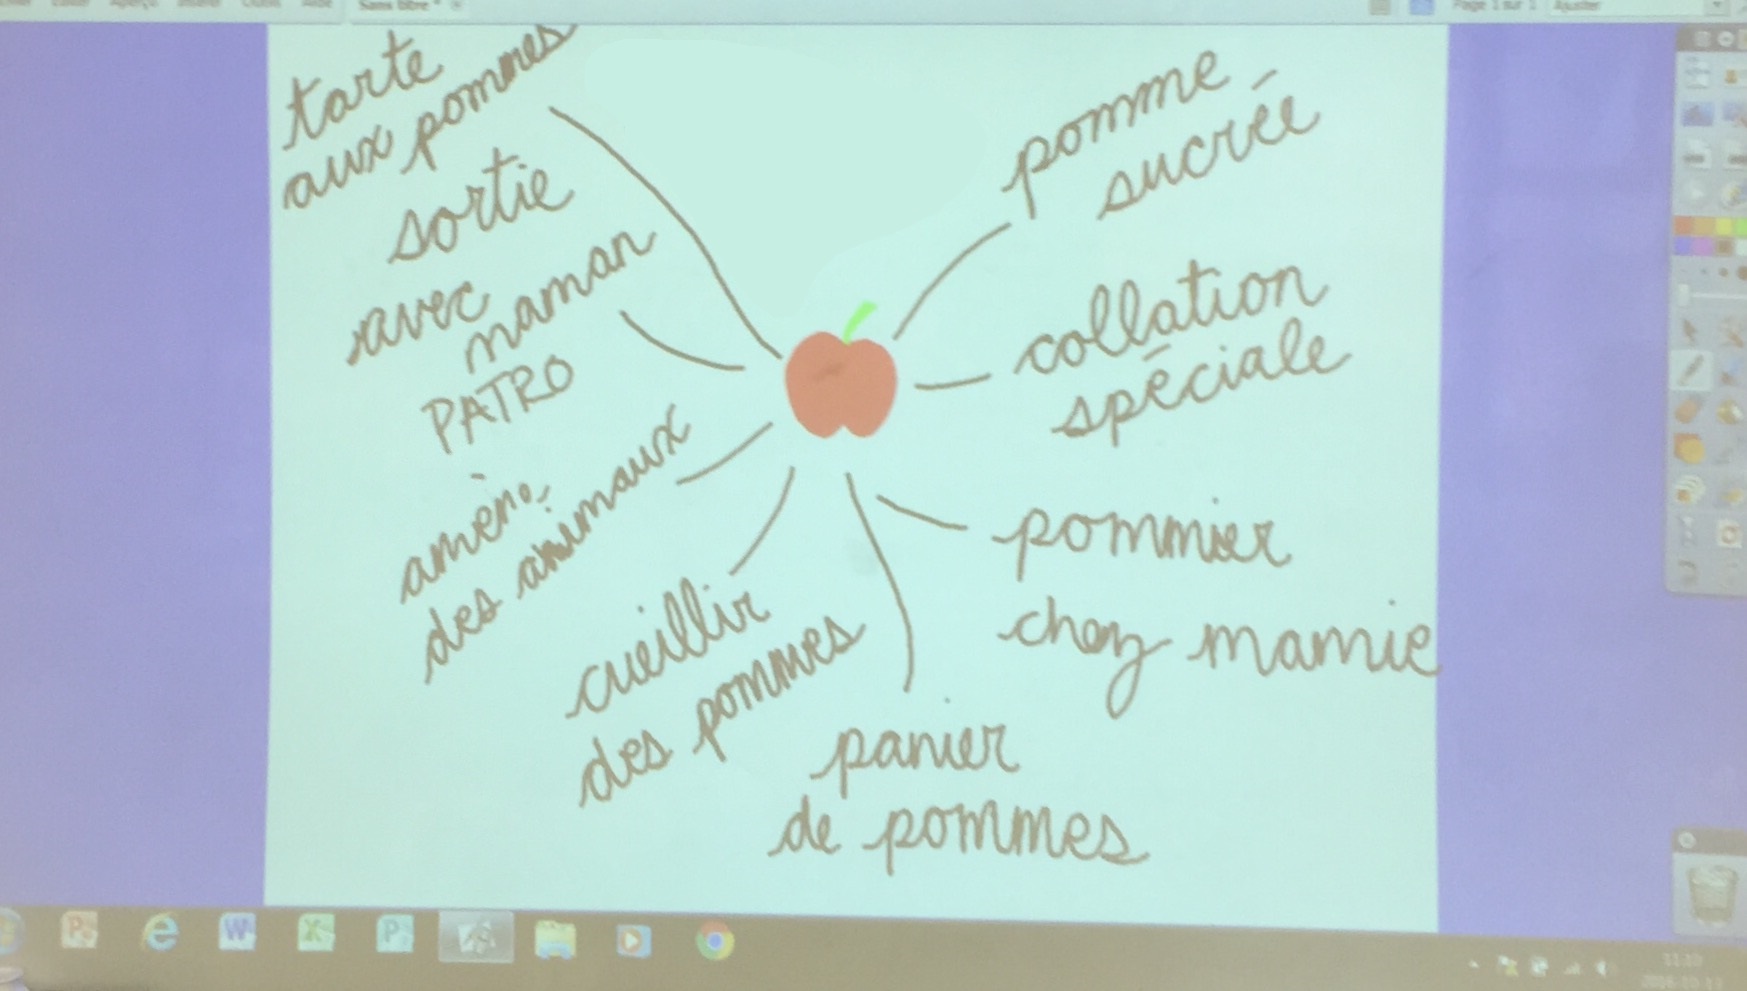 Sans titre *
Page 1 sur 1 Ajuster
tarte
aux pommes
sortie
avec
maman
PATRO
amène
des animaux
cueillir
des pommes
panier
de pommes
pommier
chez mamie
collation
spéciale
pomme
sucrée
11:10